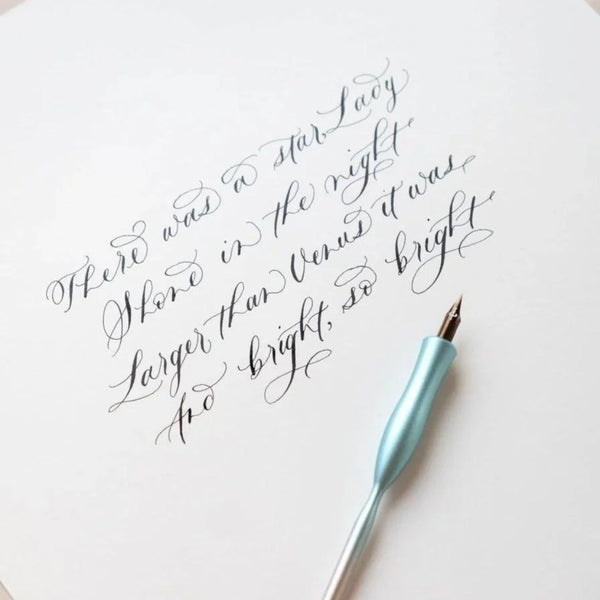 There was a star Lady
Shone in the night
Larger than Venus it was,
And bright, so bright